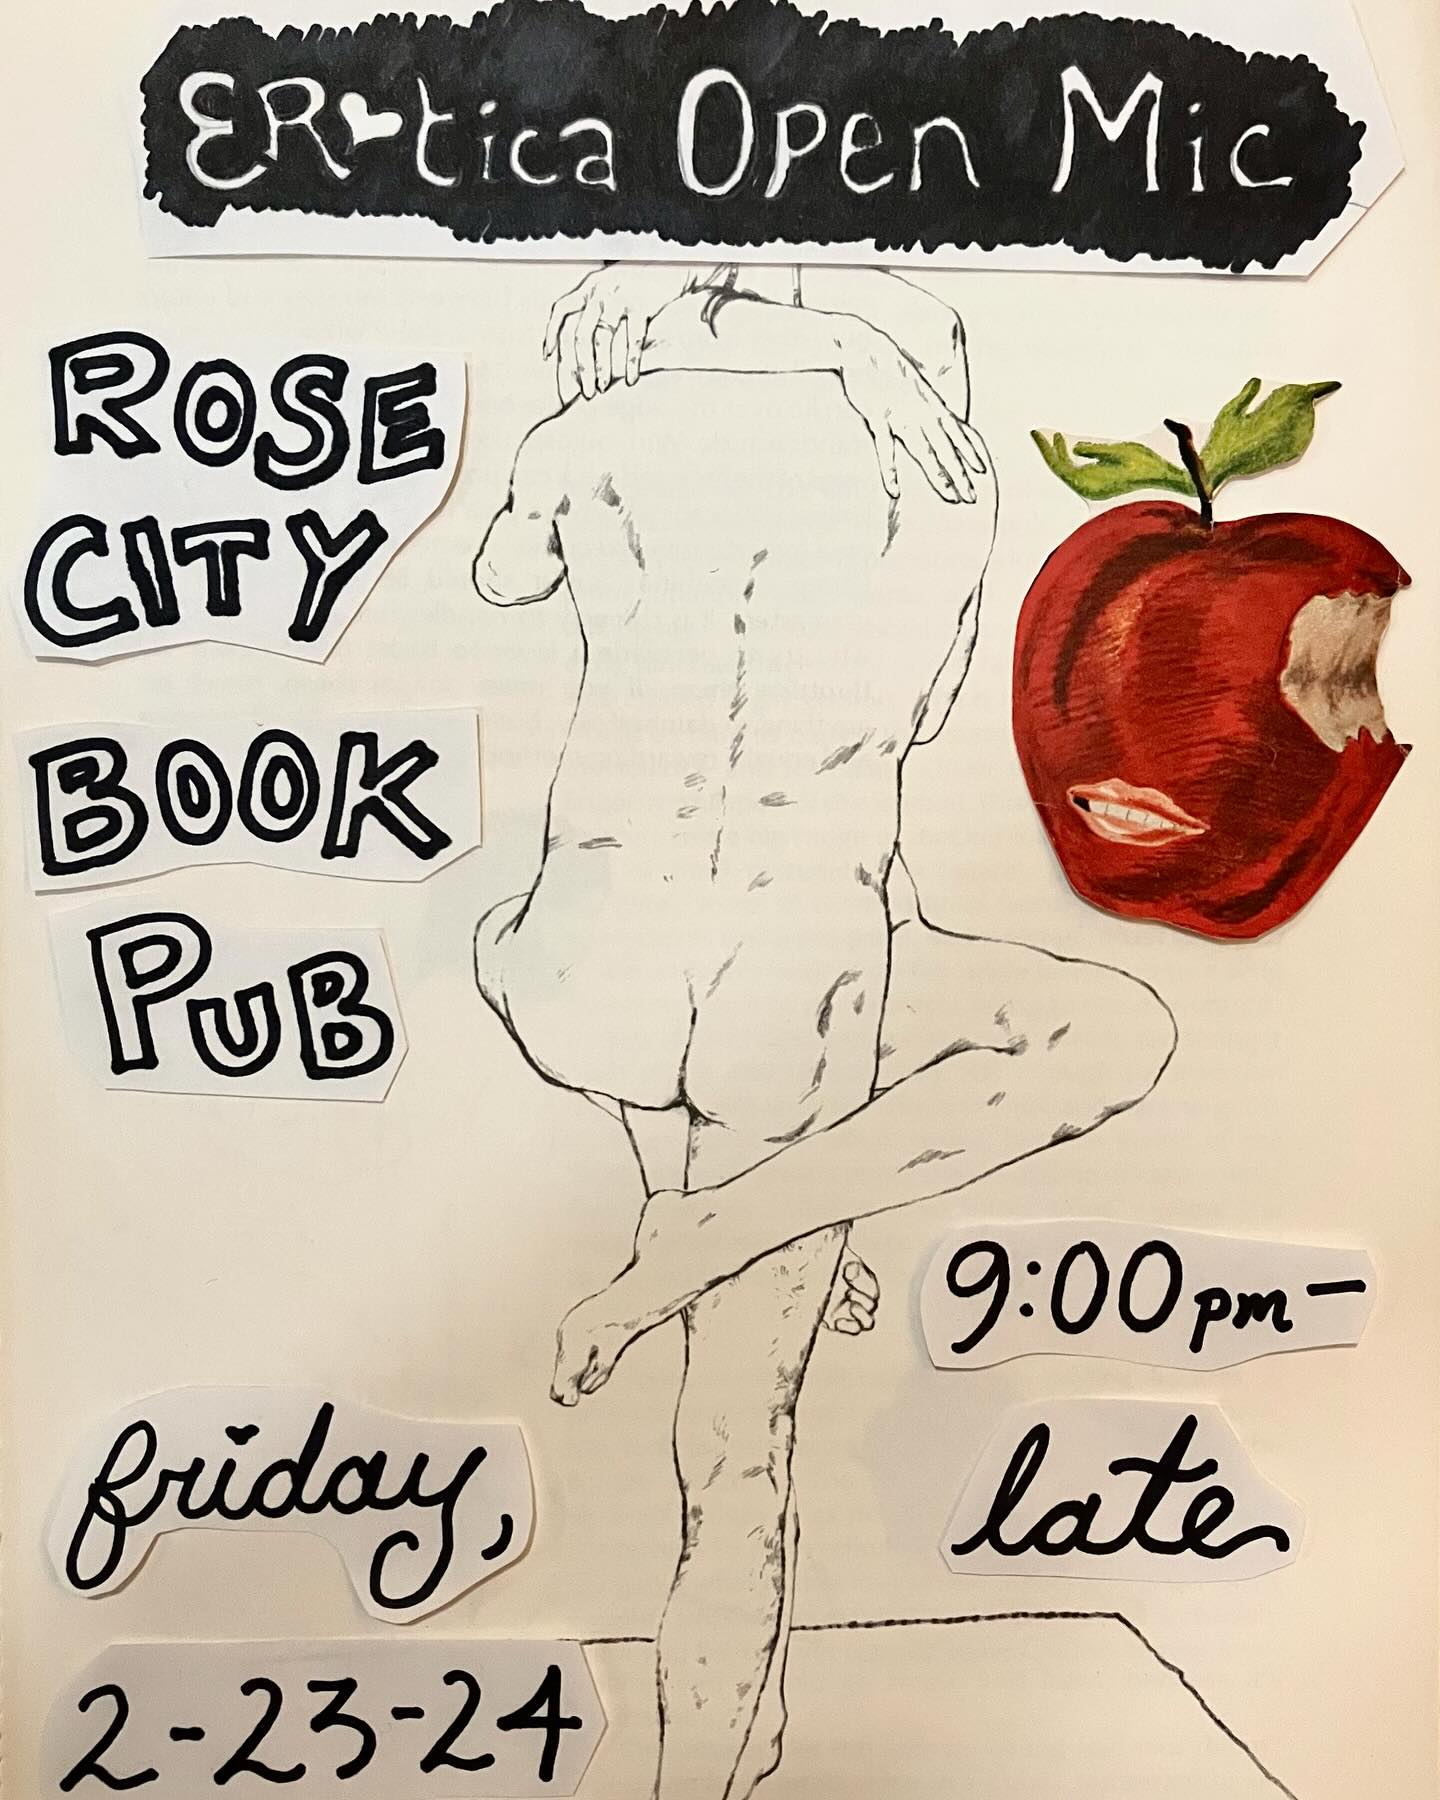 ER♥tica Open Mic
ROSE
CITY
BOOK
PUB
9:00pm–
late
friday,
2-23-24